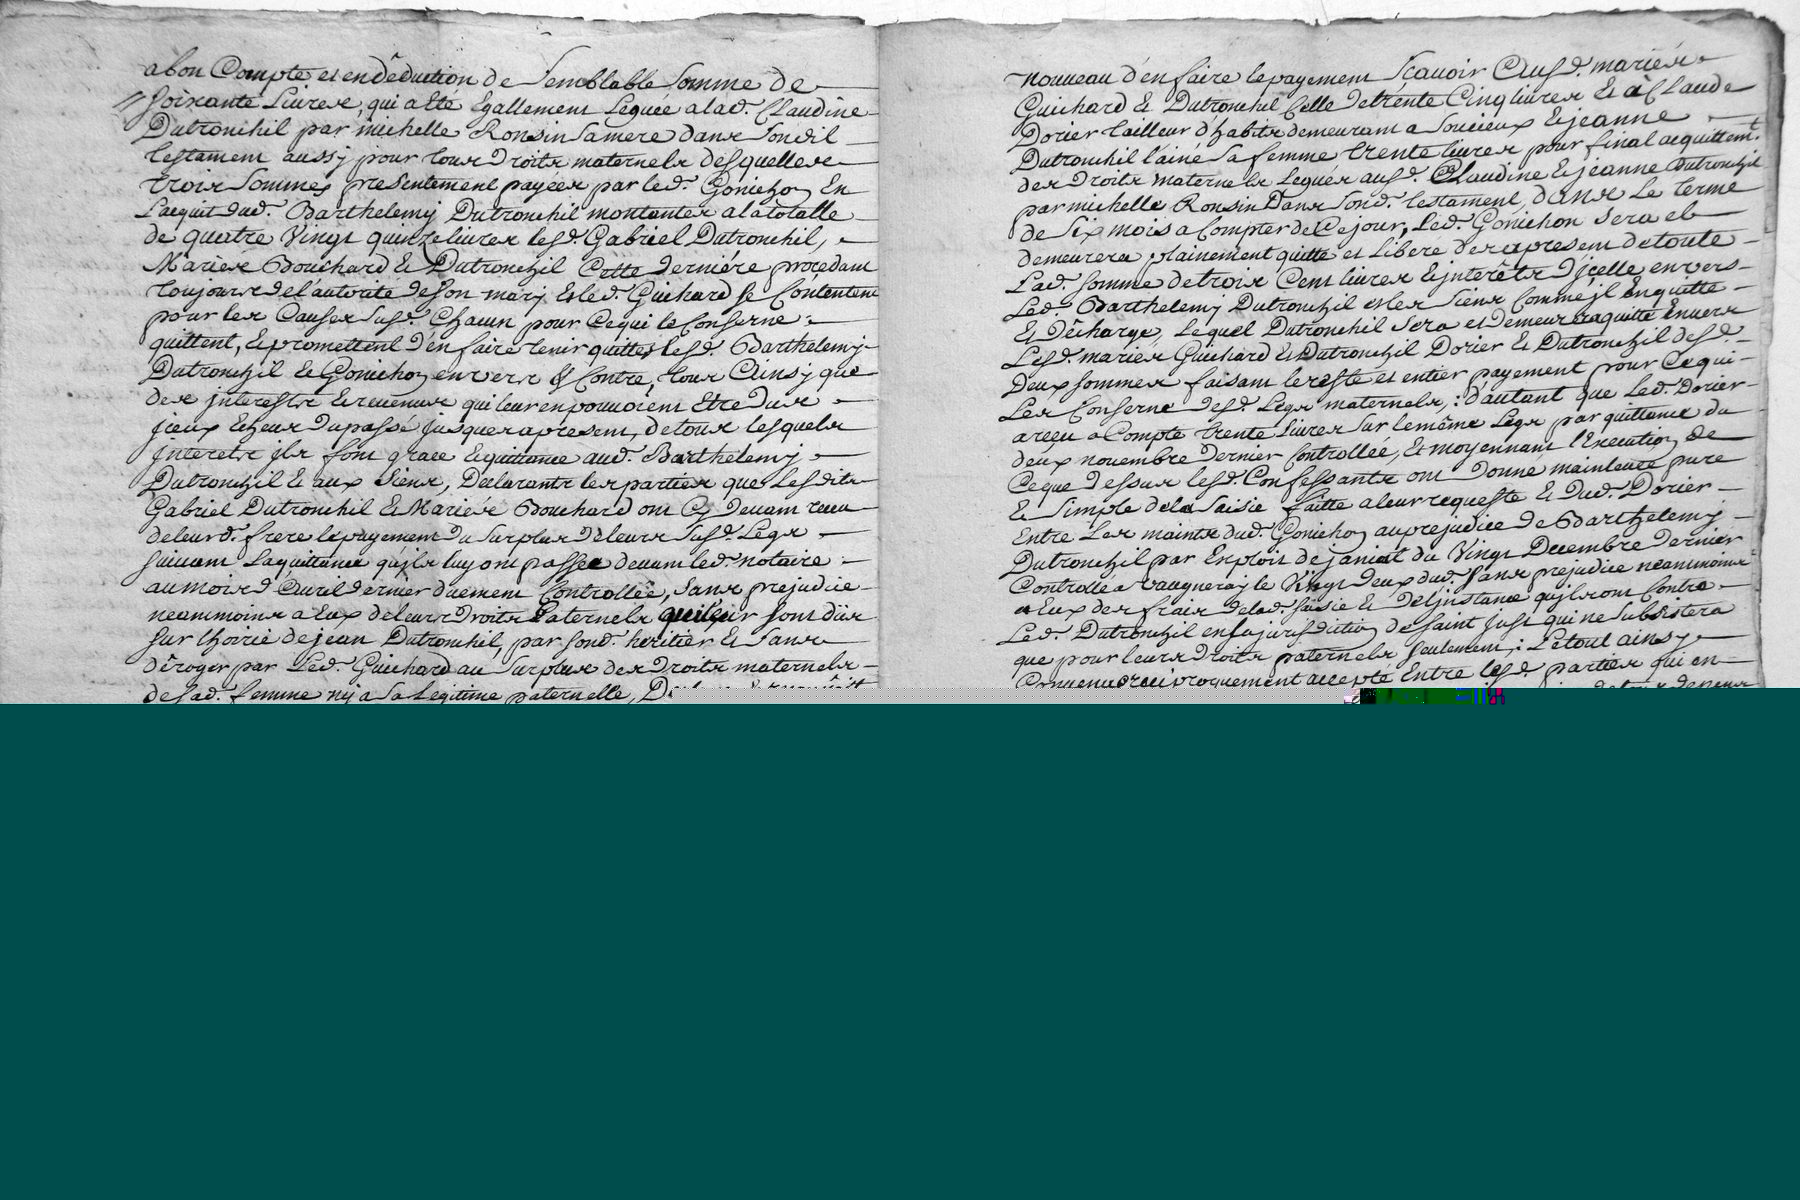 abon Compte et en dêduction de Semblable Somme de
Soixante Livres, qui a Eté Egallement Leguée a lad. Claudine
Dutronchil par michelle Ronsin Sa mere dans Sondit
testament aussy pour tous Droits maternels desquelles
trois Sommes presentement payées par led. Gonichon En
Lacquit dud. Barthelemy Dutronchil montantes a la totalle
de quatre Vingt quinze livres lesd. Gabriel Dutronchil,
Mariés Bouchard & Dutronchil Cette derniére procedant
toujours de l'autorité de son mary Et led. Guichard Se Contentent
pour les Causes Susd. Chacun pour Cequi le Conserne
quittent, & promettent d'en faire tenir quittes lesd. Barthelemy
Dutronchil & Gonichon envers & Contre, tous Ainsy que
des jnterests & revenus qui leur en pouvoient Etre Dus
jceux Echeus du passé jusques apresent, de tous lesquels
jnterets jls font grace & quittance aud. Barthelemy
Dutronchil & aux Siens, Declarants les parties que Lesdits
Gabriel Dutronchil & Mariés Bouchard ont Cy devant receu
de leurd. frere le payement du Surplus de leurs Susd. Legs
Suivant La quittance qu'jls luy ont passée devant led. notaire
au mois d'Avril dernier duement Controllée, Sans prejudice
neammoins a Eux de leurs Droits Paternels qui leur Sont Dûs
Sur lhoirie de jean Dutronchil, par Sond. heritier & Sans
dêroger par Led. Guichard au Surplus des Droits maternels
de Sad. femme ny a Sa Legitime paternelle,
nouveau d'en faire le payement Scavoir Ausd. mariés
Guichard & Dutronchil Celle de trente Cinq livres Et à Claude
Dorier tailleur d'habits demeurant a Soucieux & jeanne
Dutronchil l'ainé Sa femme trente livres pour final acquittemt.
des Droits maternels Legués ausd. Claudine & jeanne Dutronchil
par michelle Ronsin Dans Sond. testament, dans Le terme
de Six mois a Compter de Ce jour, Led. Gonichon Sera et
demeurera plainement quitte et Libere des apresent de toute
Lad. Somme de trois Cent livres & jnterêts d'jcelle envers
Led. Barthelemy Dutronchil et les Siens Comme jl En quitte
Et dêcharge, Lequel Dutronchil Sera et demeurera quitte Envers
Lesd. mariés Guichard & Dutronchil Dorier & Dutronchil desd.
Deux sommes faisant le reste et entier payement pour Cequi
Les Conserne desd. Legs maternels, : d'autant que Led. Dorier
a receu a Compte trente Livres Sur le même Legs par quittance du
deux novembre Dernier Controllée, Et moyennant l'Execution de
Ceque dessus lesd. Confessants ont Donné mainlevée pure
& Simple de la Saisie faitte a leur requeste & dud. Dorier
Entre Les mains dud. Gonichon au prejudice de Barthelemy
Dutronchil par Exploit de janiat du Vingt Decembre Dernier
Controllé a vaugneray le Vingt deux dud. Sans prejudice neammoins
a Eux des frais de lad. Saisie & de l'jnstance qu'jls ont Contre
Led. Dutronchil en la jurisdiction de saint just qui ne Subsistera
que pour leurs Droits paternels Seulement, : Le tout ainsy
Convenu & reciproquement accepté Entre lesd. parties qui en